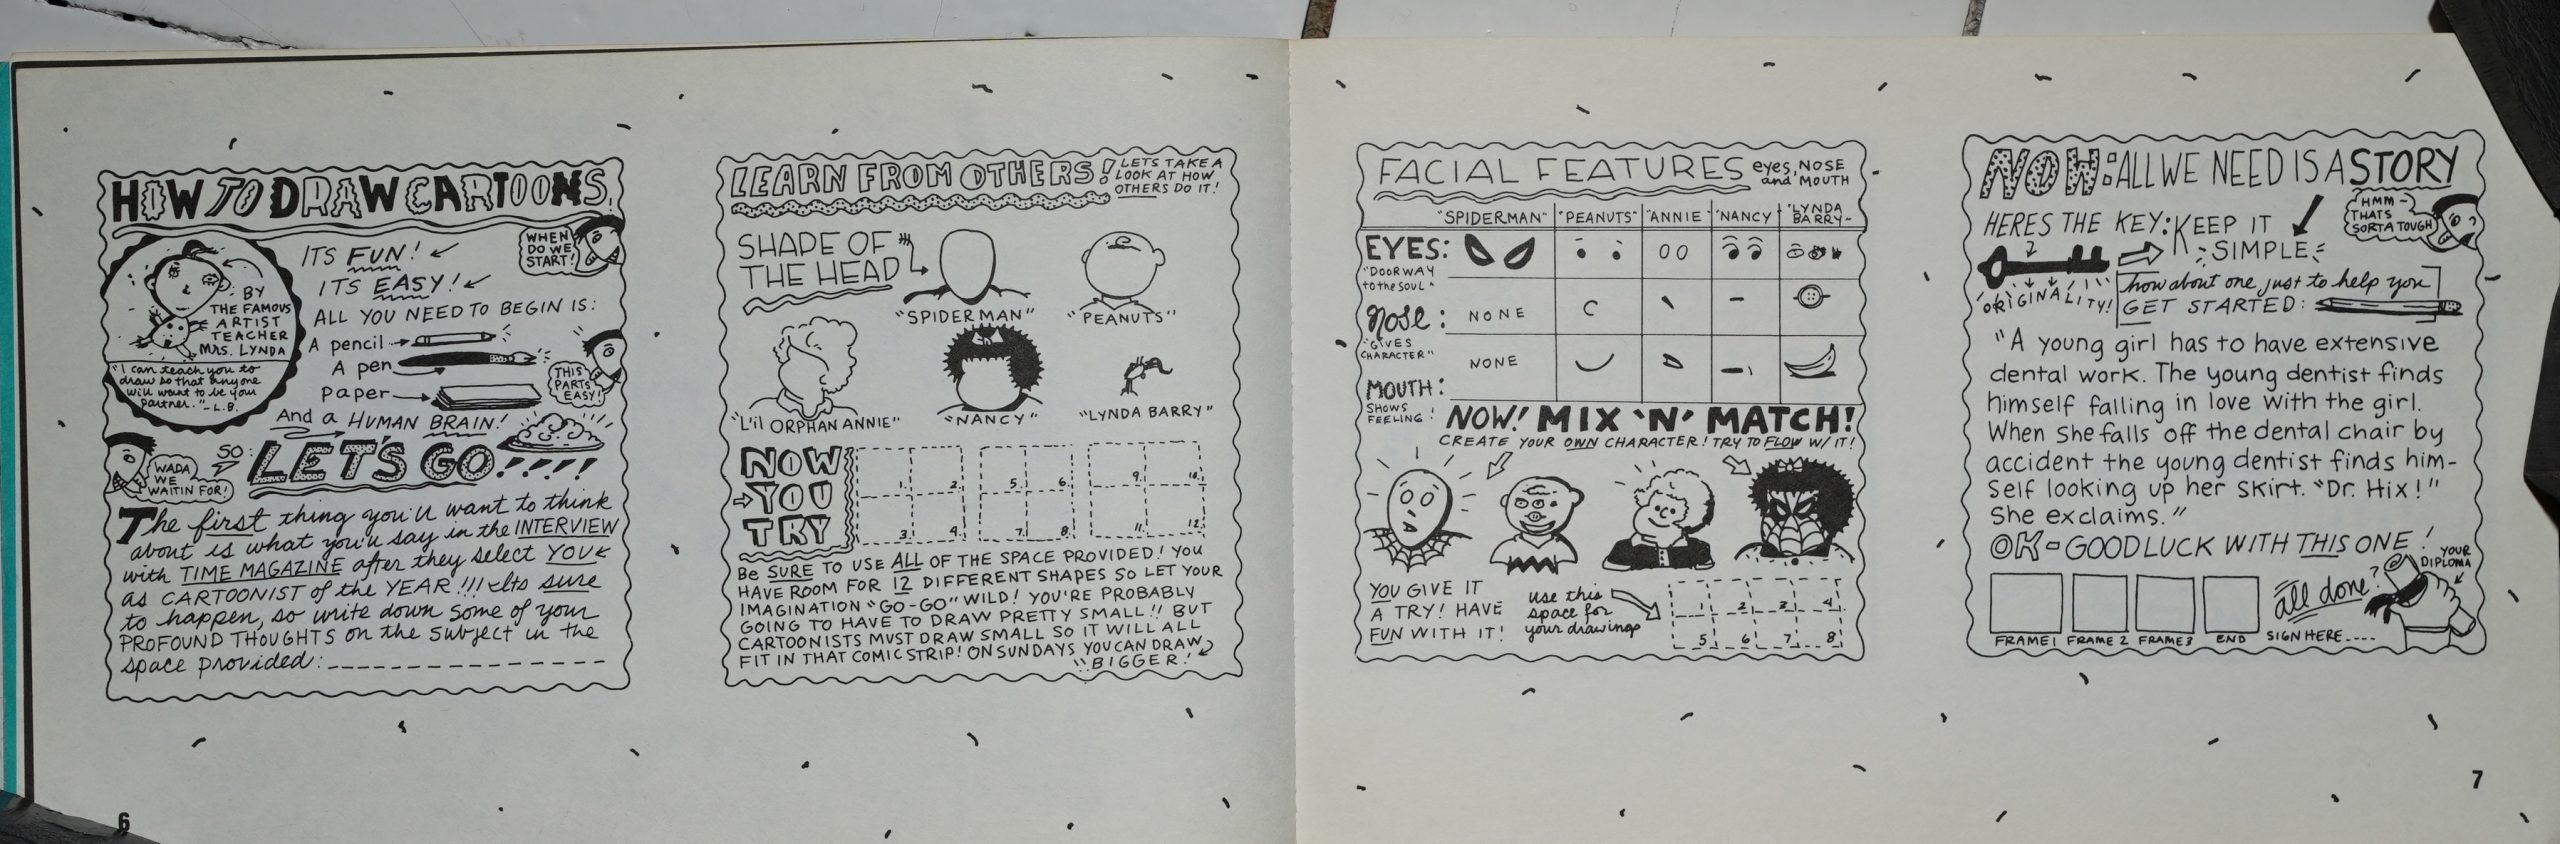 HOW TO DRAW CARTOONS!
BY
THE FAMOUS
ARTIST
TEACHER
MRS. LYNDA
"I can teach you to
draw so that anyone
will want to be your
partner." -L.B.
ITS FUN!
ITS EASY!
WHEN
DO WE
START!
ALL YOU NEED TO BEGIN IS:
A pencil
A pen
paper
THIS
PARTS
EASY!
And a HUMAN BRAIN!
WADA
WE
WAITIN FOR!
SO:
LET'S GO!!!!!
The first thing you'll want to think
about is what you'll say in the INTERVIEW
with TIME MAGAZINE after they select YOU
as CARTOONIST of the YEAR!!! Its sure
to happen, so write down some of your
PROFOUND THOUGHTS on the subject in the
space provided:
6
LEARN FROM OTHERS!
LETS TAKE A
LOOK AT HOW
OTHERS DO IT!
SHAPE OF
THE HEAD
"SPIDERMAN"
"PEANUTS"
"L'il ORPHAN ANNIE"
"NANCY"
"LYNDA BARRY"
NOW
YOU
TRY
1. 2. 5. 6. 9. 10.
3. 4. 7. 8. 11. 12.
Be SURE TO USE ALL OF THE SPACE PROVIDED! YOU
HAVE ROOM FOR 12 DIFFERENT SHAPES SO LET YOUR
IMAGINATION "GO-GO" WILD! YOU'RE PROBABLY
GOING TO HAVE TO DRAW PRETTY SMALL!! BUT
CARTOONISTS MUST DRAW SMALL SO IT WILL ALL
FIT IN THAT COMIC STRIP! ON SUNDAYS YOU CAN DRAW
BIGGER!
FACIAL FEATURES eyes, NOSE
and MOUTH
"SPIDERMAN" "PEANUTS" "ANNIE" "NANCY" "LYNDA
BARRY-
EYES:
"DOORWAY
to the SOUL"
Nose:
NONE
"GIVES
CHARACTER"
NONE
MOUTH:
SHOWS
FEELING!
NOW! MIX 'N' MATCH!
CREATE YOUR OWN CHARACTER! TRY TO FLOW W/ IT!
YOU GIVE IT
A TRY! HAVE
FUN WITH IT!
use this
space for
your drawings
1 2 3 4
5 6 7 8
NOW: ALL WE NEED IS A STORY
HERES THE KEY: KEEP IT
SIMPLE
HMM-
THATS
SORTA TOUGH
ORIGINALITY!
how about one just to help you
GET STARTED:
"A young girl has to have extensive
dental work. The young dentist finds
himself falling in love with the girl.
When she falls off the dental chair by
accident the young dentist finds him-
self looking up her skirt. "Dr. Hix!"
She exclaims."
OK- GOOD LUCK WITH THIS ONE!
YOUR
DIPLOMA
all done?
FRAME 1 FRAME 2 FRAME 3 END SIGN HERE....
7